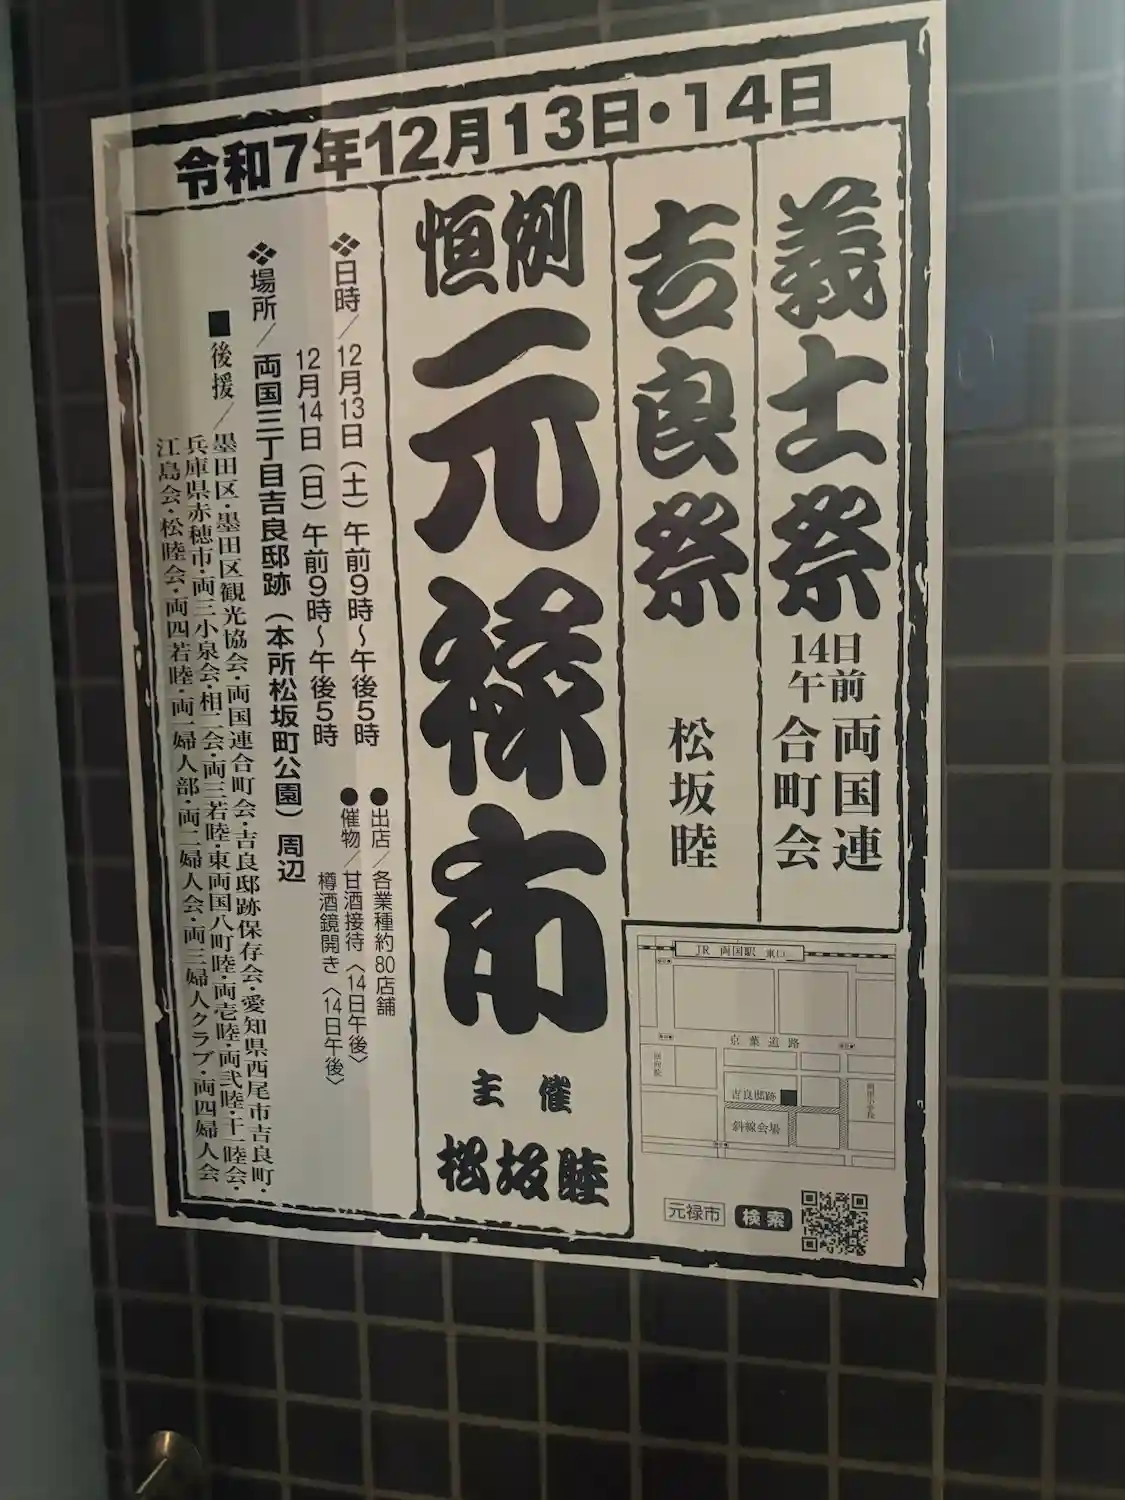 令和7年12月13日・14日
義士祭
14日
午前
両国連
合町会
吉良祭
松坂睦
恒例
元禄市
主催
松坂睦
❖日時/12月13日(土)午前9時〜午後5時
12月14日(日)午前9時〜午後5時
●出店/各業種約80店舗
●催物/甘酒接待〈14日午後〉
樽酒鏡開き〈14日午後〉
❖場所/両国三丁目吉良邸跡(本所松坂町公園)周辺
■後援/墨田区・墨田区観光協会・両国連合町会・吉良邸跡保存会・愛知県西尾市吉良町・
兵庫県赤穂市・両三小泉会・相二会・両三若睦・東両国八町睦・両壱睦・両弐睦・十一睦会・
江島会・松睦会・両四若睦・両一婦人部・両二婦人会・両三婦人クラブ・両四婦人会
JR 両国駅 東口
京葉道路
吉良邸跡
斜線会場
元禄市 検索